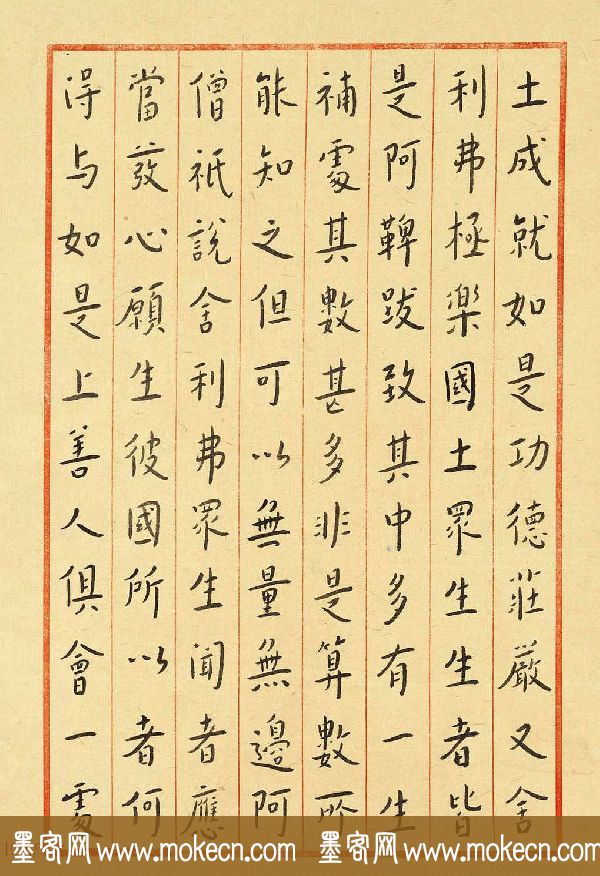 土成就如是功德莊嚴又舍
利弗極樂國土眾生生者皆
是阿鞞跋致其中多有一生
補處其數甚多非是算數所
能知之但可以無量無邊阿
僧祇說舍利弗眾生聞者應
當發心願生彼國所以者何
得与如是上善人俱會一處
墨客网 www.mokecn.com 墨客网 www.mokecn.com